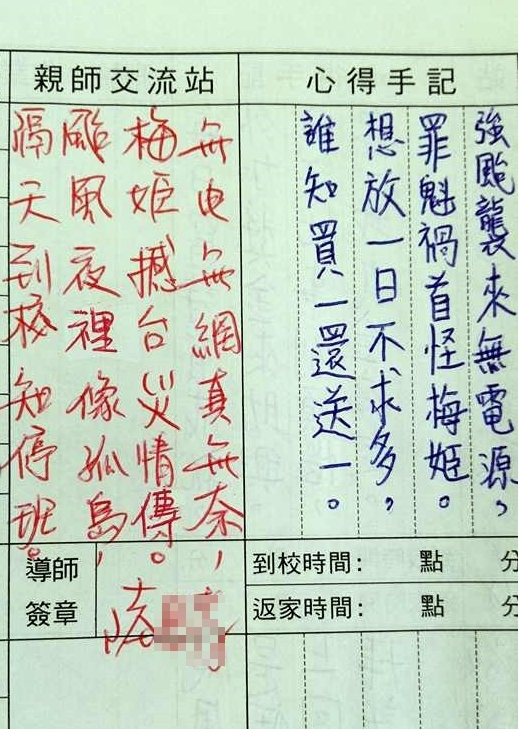 心得手記
強颱襲來無電源，
罪魁禍首怪梅姬。
想放一日不求多，
誰知買一還送一。
親師交流站
無电無網真無奈，
梅姬撼台災情傳。
颱風夜裡像孤島，
隔天到校知停班。
到校時間： 點 分
返家時間： 點 分
導師
簽章